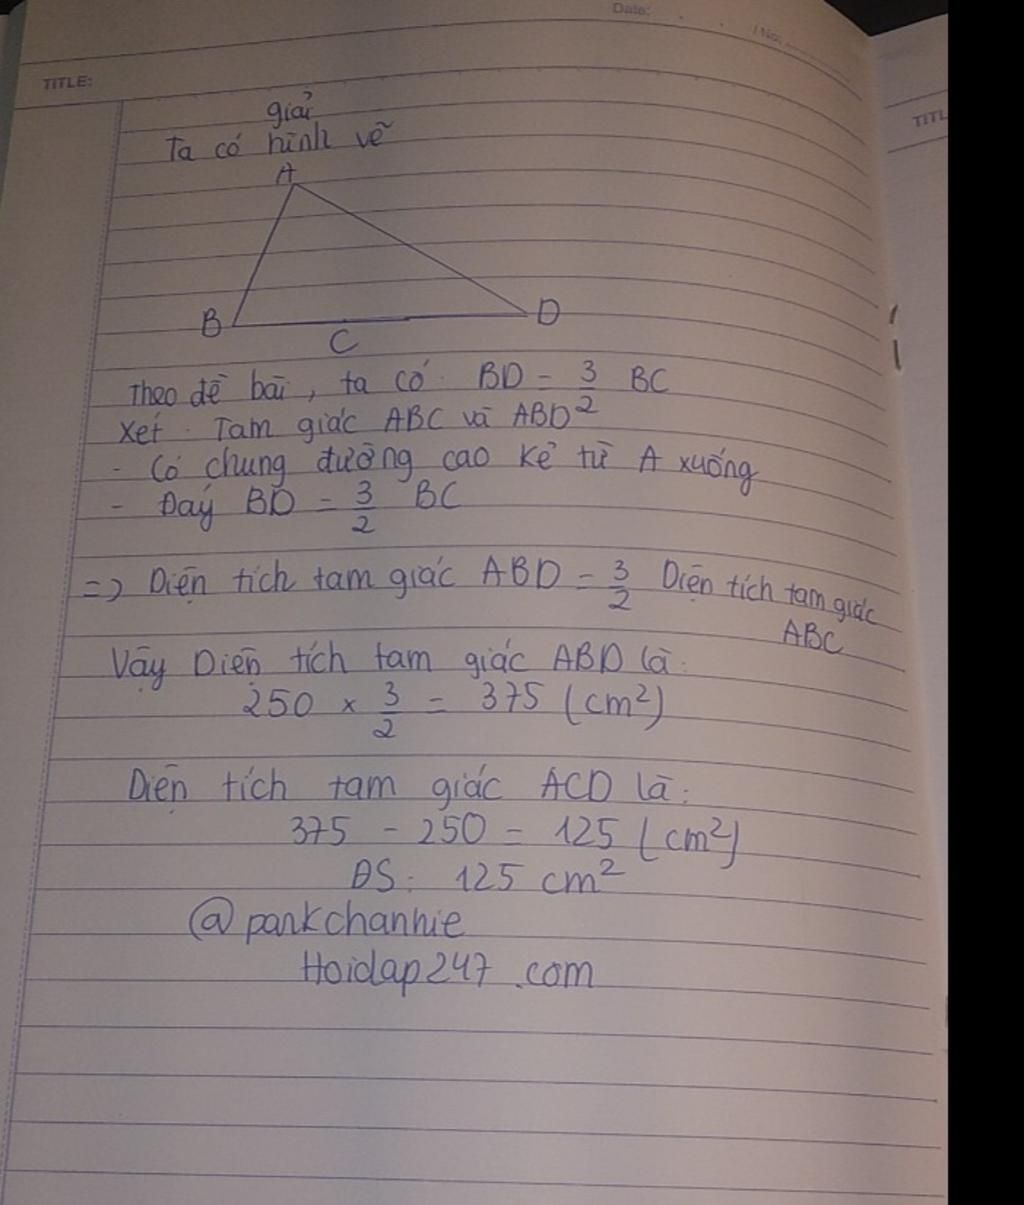 Date:
/ No:
TITLE:
TITL
giải
Ta có hình vẽ
A
B
D
C
Theo đề bài, ta có BD = 3/2 BC
Xét: Tam giác ABC và ABD
- Có chung đường cao kẻ từ A xuống
- Đáy BD = 3/2 BC
=> Diện tích tam giác ABD = 3/2 Diện tích tam giác
ABC
Vậy Diện tích tam giác ABD là:
250 × 3/2 = 375 (cm²)
Diện tích tam giác ACD là:
375 - 250 = 125 (cm²)
ĐS: 125 cm²
@parkchanhie
Hoidap247.com